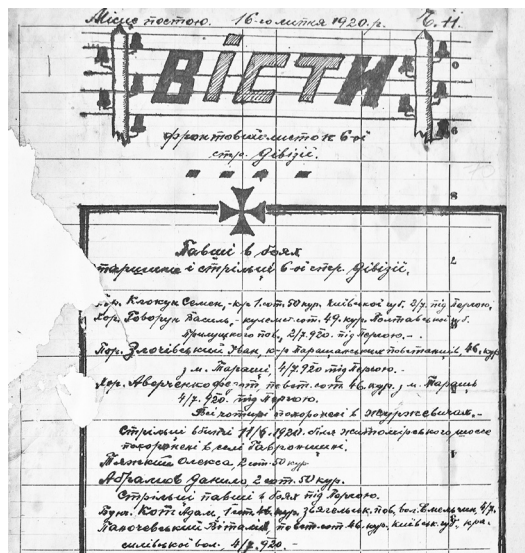 Місце постою. 16-го липня 1920.р. Ч. 11.
ВІСТИ
фронтовий листок 6-ої
стр. Дівізії.
Павші в боях
старшини і стрільці 6-ої стр. Дівізії.
Семен, - кр 1. сот. 50 кур. Київської губ. 2/7. під Горгою.
Хор. Говорун Василь, - кулемет. сот. 49. кур. Полтавської губ.
Прилуцкого пов., 2/7.920. під Горгою. -
Пор. Злогівський Іван, к-р Таращанських повстанців, 46. кур.
м. Тараші, 4/7.920 під Горгою.
Хор. Аверченко повст. сот. 46. кур., м. Тараш
4/7.920. під Горгою.
Всі чотири похоронені в
Стрільці вбиті 11/6.1920. біля житомірського шоссе
похоронені в селі
Олекса, 2 сот. 50 кур.
Абрамов Данило, 2 сот. 50 кур.
Стрільці павші в боях під Горгою.
Бун. Кот Адам, 1 сот. 46. кур., Звягельск. пов. вол. Емільчин, 4/7.
Віталий, повст. сот. 46. кур., Київськ. губ.,
вол., 4/7.920. -